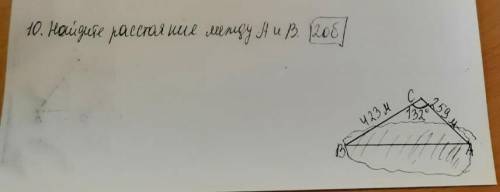 10. Найдите расстояние между А и В. 20б
C
423м 132° 259м
B A